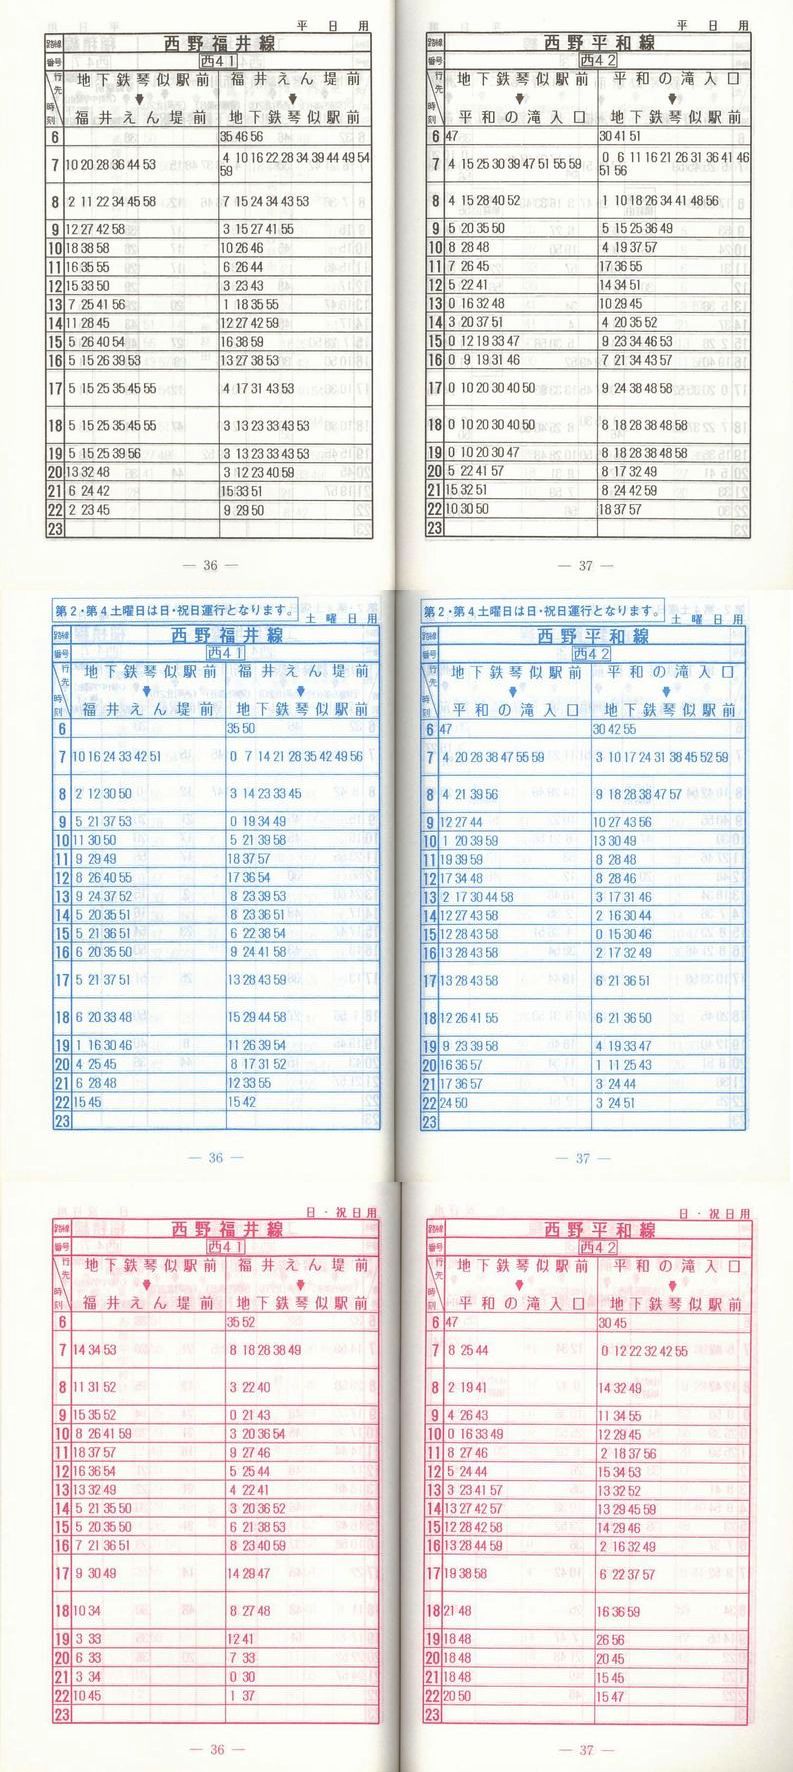 平日用
路線 西野福井線
番号 西41
行先 時刻
地下鉄琴似駅前 福井えん堤前
福井えん堤前 地下鉄琴似駅前
6 35 46 56
7 10 20 28 36 44 53 4 10 16 22 28 34 39 44 49 54
59
8 2 11 22 34 45 58 7 15 24 34 43 53
9 12 27 42 58 3 15 27 41 55
10 18 38 58 10 26 46
11 16 35 55 6 26 44
12 15 33 50 3 23 43
13 7 25 41 56 1 18 35 55
14 11 28 45 12 27 42 59
15 5 26 40 54 16 38 59
16 5 15 26 39 53 13 27 38 53
17 5 15 25 35 45 55 4 17 31 43 53
18 5 15 25 35 45 55 3 13 23 33 43 53
19 5 15 25 39 56 3 13 23 33 43 53
20 13 32 48 3 12 23 40 59
21 6 24 42 15 33 51
22 2 23 45 9 29 50
23
— 36 —
平日用
路線 西野平和線
番号 西42
行先 時刻
地下鉄琴似駅前 平和の滝入口
平和の滝入口 地下鉄琴似駅前
6 47 30 41 51
7 4 15 25 30 39 47 51 55 59 0 6 11 16 21 26 31 36 41 46
51 56
8 4 15 28 40 52 1 10 18 26 34 41 48 56
9 5 20 35 50 5 15 25 36 49
10 8 28 48 4 19 37 57
11 7 26 45 17 36 55
12 5 22 41 14 34 51
13 0 16 32 48 10 29 45
14 3 20 37 51 4 20 35 52
15 0 12 19 33 47 9 23 34 46 53
16 0 9 19 31 46 7 21 34 43 57
17 0 10 20 30 40 50 9 24 38 48 58
18 0 10 20 30 40 50 8 18 28 38 48 58
19 0 10 20 30 47 8 18 28 38 48 58
20 5 22 41 57 8 17 32 49
21 15 32 51 8 24 42 59
22 10 30 50 18 37 57
23
— 37 —
第2・第4土曜日は日・祝日運行となります。 土曜日用
路線 西野福井線
番号 西41
行先 時刻
地下鉄琴似駅前 福井えん堤前
福井えん堤前 地下鉄琴似駅前
6 35 50
7 10 16 24 33 42 51 0 7 14 21 28 35 42 49 56
8 2 12 30 50 3 14 23 33 45
9 5 21 37 53 0 19 34 49
10 11 30 50 5 21 39 58
11 9 29 49 18 37 57
12 8 26 40 55 17 36 54
13 9 24 37 52 8 23 39 53
14 5 20 35 51 8 23 36 51
15 5 21 36 51 6 22 38 54
16 6 20 35 50 9 24 41 58
17 5 21 37 51 13 28 43 59
18 6 20 33 48 15 29 44 58
19 1 16 30 46 11 26 39 54
20 4 25 45 8 17 31 52
21 6 28 48 12 33 55
22 15 45 15 42
23
— 36 —
第2・第4土曜日は日・祝日運行となります。 土曜日用
路線 西野平和線
番号 西42
行先 時刻
地下鉄琴似駅前 平和の滝入口
平和の滝入口 地下鉄琴似駅前
6 47 30 42 55
7 4 20 28 38 47 55 59 3 10 17 24 31 38 45 52 59
8 4 21 39 56 9 18 28 38 47 57
9 12 27 44 10 27 43 56
10 1 20 39 59 13 30 49
11 19 39 59 8 28 48
12 17 34 48 8 28 46
13 2 17 30 44 58 3 17 31 46
14 12 27 43 58 2 16 30 44
15 12 28 43 58 0 15 30 46
16 13 28 43 58 2 17 32 49
17 13 28 43 58 6 21 36 51
18 12 26 41 55 6 21 36 50
19 9 23 39 58 4 19 33 47
20 16 36 57 1 11 25 43
21 17 36 57 3 24 44
22 24 50 3 24 51
23
— 37 —
日・祝日用
路線 西野福井線
番号 西41
行先 時刻
地下鉄琴似駅前 福井えん堤前
福井えん堤前 地下鉄琴似駅前
6 35 52
7 14 34 53 8 18 28 38 49
8 11 31 52 3 22 40
9 15 35 52 0 21 43
10 8 26 41 59 3 20 36 54
11 18 37 57 9 27 46
12 16 36 54 5 25 44
13 13 32 49 4 22 41
14 5 21 35 50 3 20 36 52
15 5 20 35 50 6 21 38 53
16 7 21 36 51 8 23 40 59
17 9 30 49 14 29 47
18 10 34 8 27 48
19 3 33 12 41
20 6 33 7 33
21 3 34 0 30
22 10 45 1 37
23
— 36 —
日・祝日用
路線 西野平和線
番号 西42
行先 時刻
地下鉄琴似駅前 平和の滝入口
平和の滝入口 地下鉄琴似駅前
6 47 30 45
7 8 25 44 0 12 22 32 42 55
8 2 19 41 14 32 49
9 4 26 43 11 34 55
10 0 16 33 49 12 29 45
11 8 27 46 2 18 37 56
12 5 24 44 15 34 53
13 3 23 41 57 13 32 52
14 13 27 42 57 13 29 45 59
15 12 28 42 58 14 29 46
16 13 28 44 59 2 16 32 49
17 19 38 58 6 22 37 57
18 21 48 16 36 59
19 18 48 26 56
20 18 48 20 45
21 18 48 15 45
22 20 50 15 47
23
— 37 —